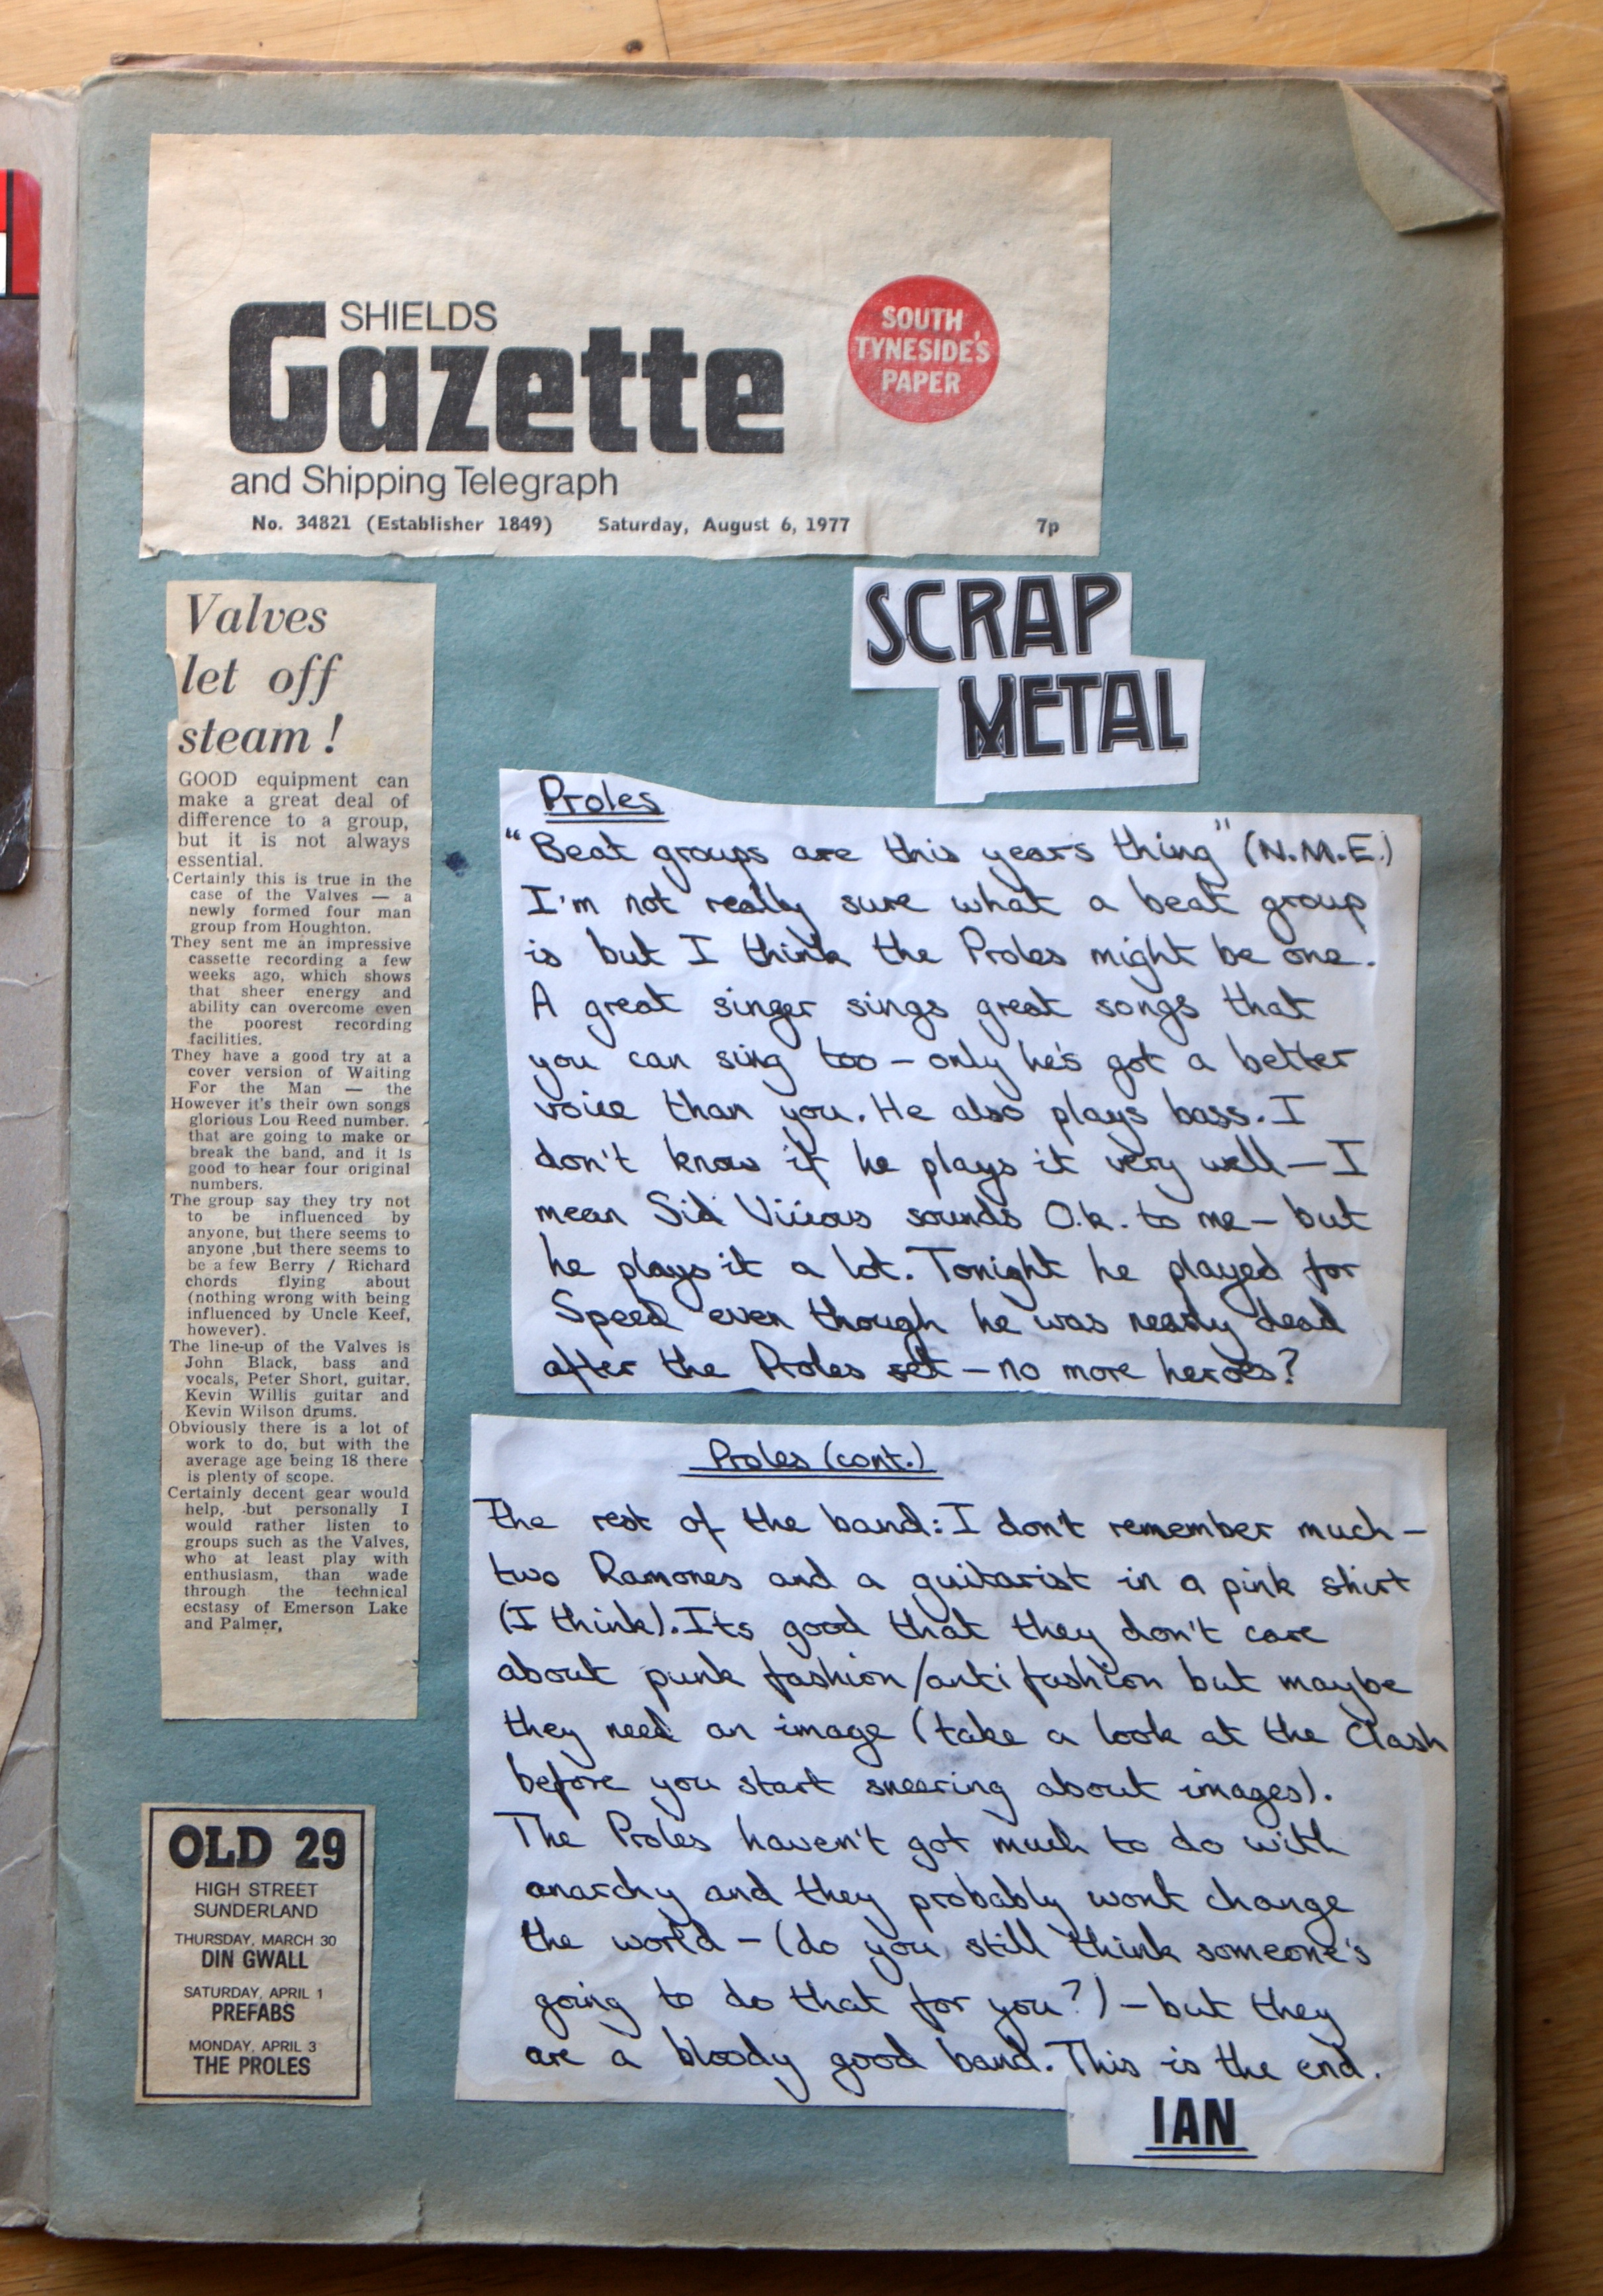 SHIELDS
Gazette
and Shipping Telegraph
SOUTH
TYNESIDE'S
PAPER
No. 34821 (Establisher 1849) Saturday, August 6, 1977 7p
Valves
let off
steam !
GOOD equipment can
make a great deal of
difference to a group,
but it is not always
essential.
Certainly this is true in the
case of the Valves — a
newly formed four man
group from Houghton.
They sent me an impressive
cassette recording a few
weeks ago, which shows
that sheer energy and
ability can overcome even
the poorest recording
facilities.
They have a good try at a
cover version of Waiting
For the Man — the
However it's their own songs
glorious Lou Reed number.
that are going to make or
break the band, and it is
good to hear four original
numbers.
The group say they try not
to be influenced by
anyone, but there seems to
anyone ,but there seems to
be a few Berry / Richard
chords flying about
(nothing wrong with being
influenced by Uncle Keef,
however).
The line-up of the Valves is
John Black, bass and
vocals, Peter Short, guitar,
Kevin Willis guitar and
Kevin Wilson drums.
Obviously there is a lot of
work to do, but with the
average age being 18 there
is plenty of scope.
Certainly decent gear would
help, but personally I
would rather listen to
groups such as the Valves,
who at least play with
enthusiasm, than wade
through the technical
ecstasy of Emerson Lake
and Palmer,
OLD 29
HIGH STREET
SUNDERLAND
THURSDAY, MARCH 30
DIN GWALL
SATURDAY, APRIL 1
PREFABS
MONDAY, APRIL 3
THE PROLES
SCRAP
METAL
Proles
"Beat groups are this years thing" (N.M.E.)
I'm not really sure what a beat group
is but I think the Proles might be one.
A great singer sings great songs that
you can sing too – only he's got a better
voice than you. He also plays bass. I
don't know if he plays it very well – I
mean Sid Vicious sounds O.k. to me – but
he plays it a lot. Tonight he played for
Speed even though he was nearly dead
after the Proles set – no more heroes?
Proles (cont.)
The rest of the band: I don't remember much –
two Ramones and a guitarist in a pink shirt
(I think). Its good that they don't care
about punk fashion/anti fashion but maybe
they need an image (take a look at the Clash
before you start sneering about images).
The Proles haven't got much to do with
anarchy and they probably wont change
the world – (do you still think someone's
going to do that for you?) – but they
are a bloody good band. This is the end.
IAN